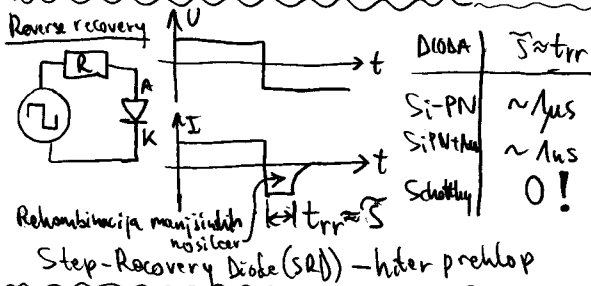 Reverse recovery
U
t
R
A
K
I
t
t_rr ≈ τ
Rekombinacija manjšinskih
nosilcev
DIODA τ ≈ t_rr
Si-PN ~1µs
SiPN+Au ~1ns
Schottky 0!
Step-Recovery Diode (SRD) – hiter preklop